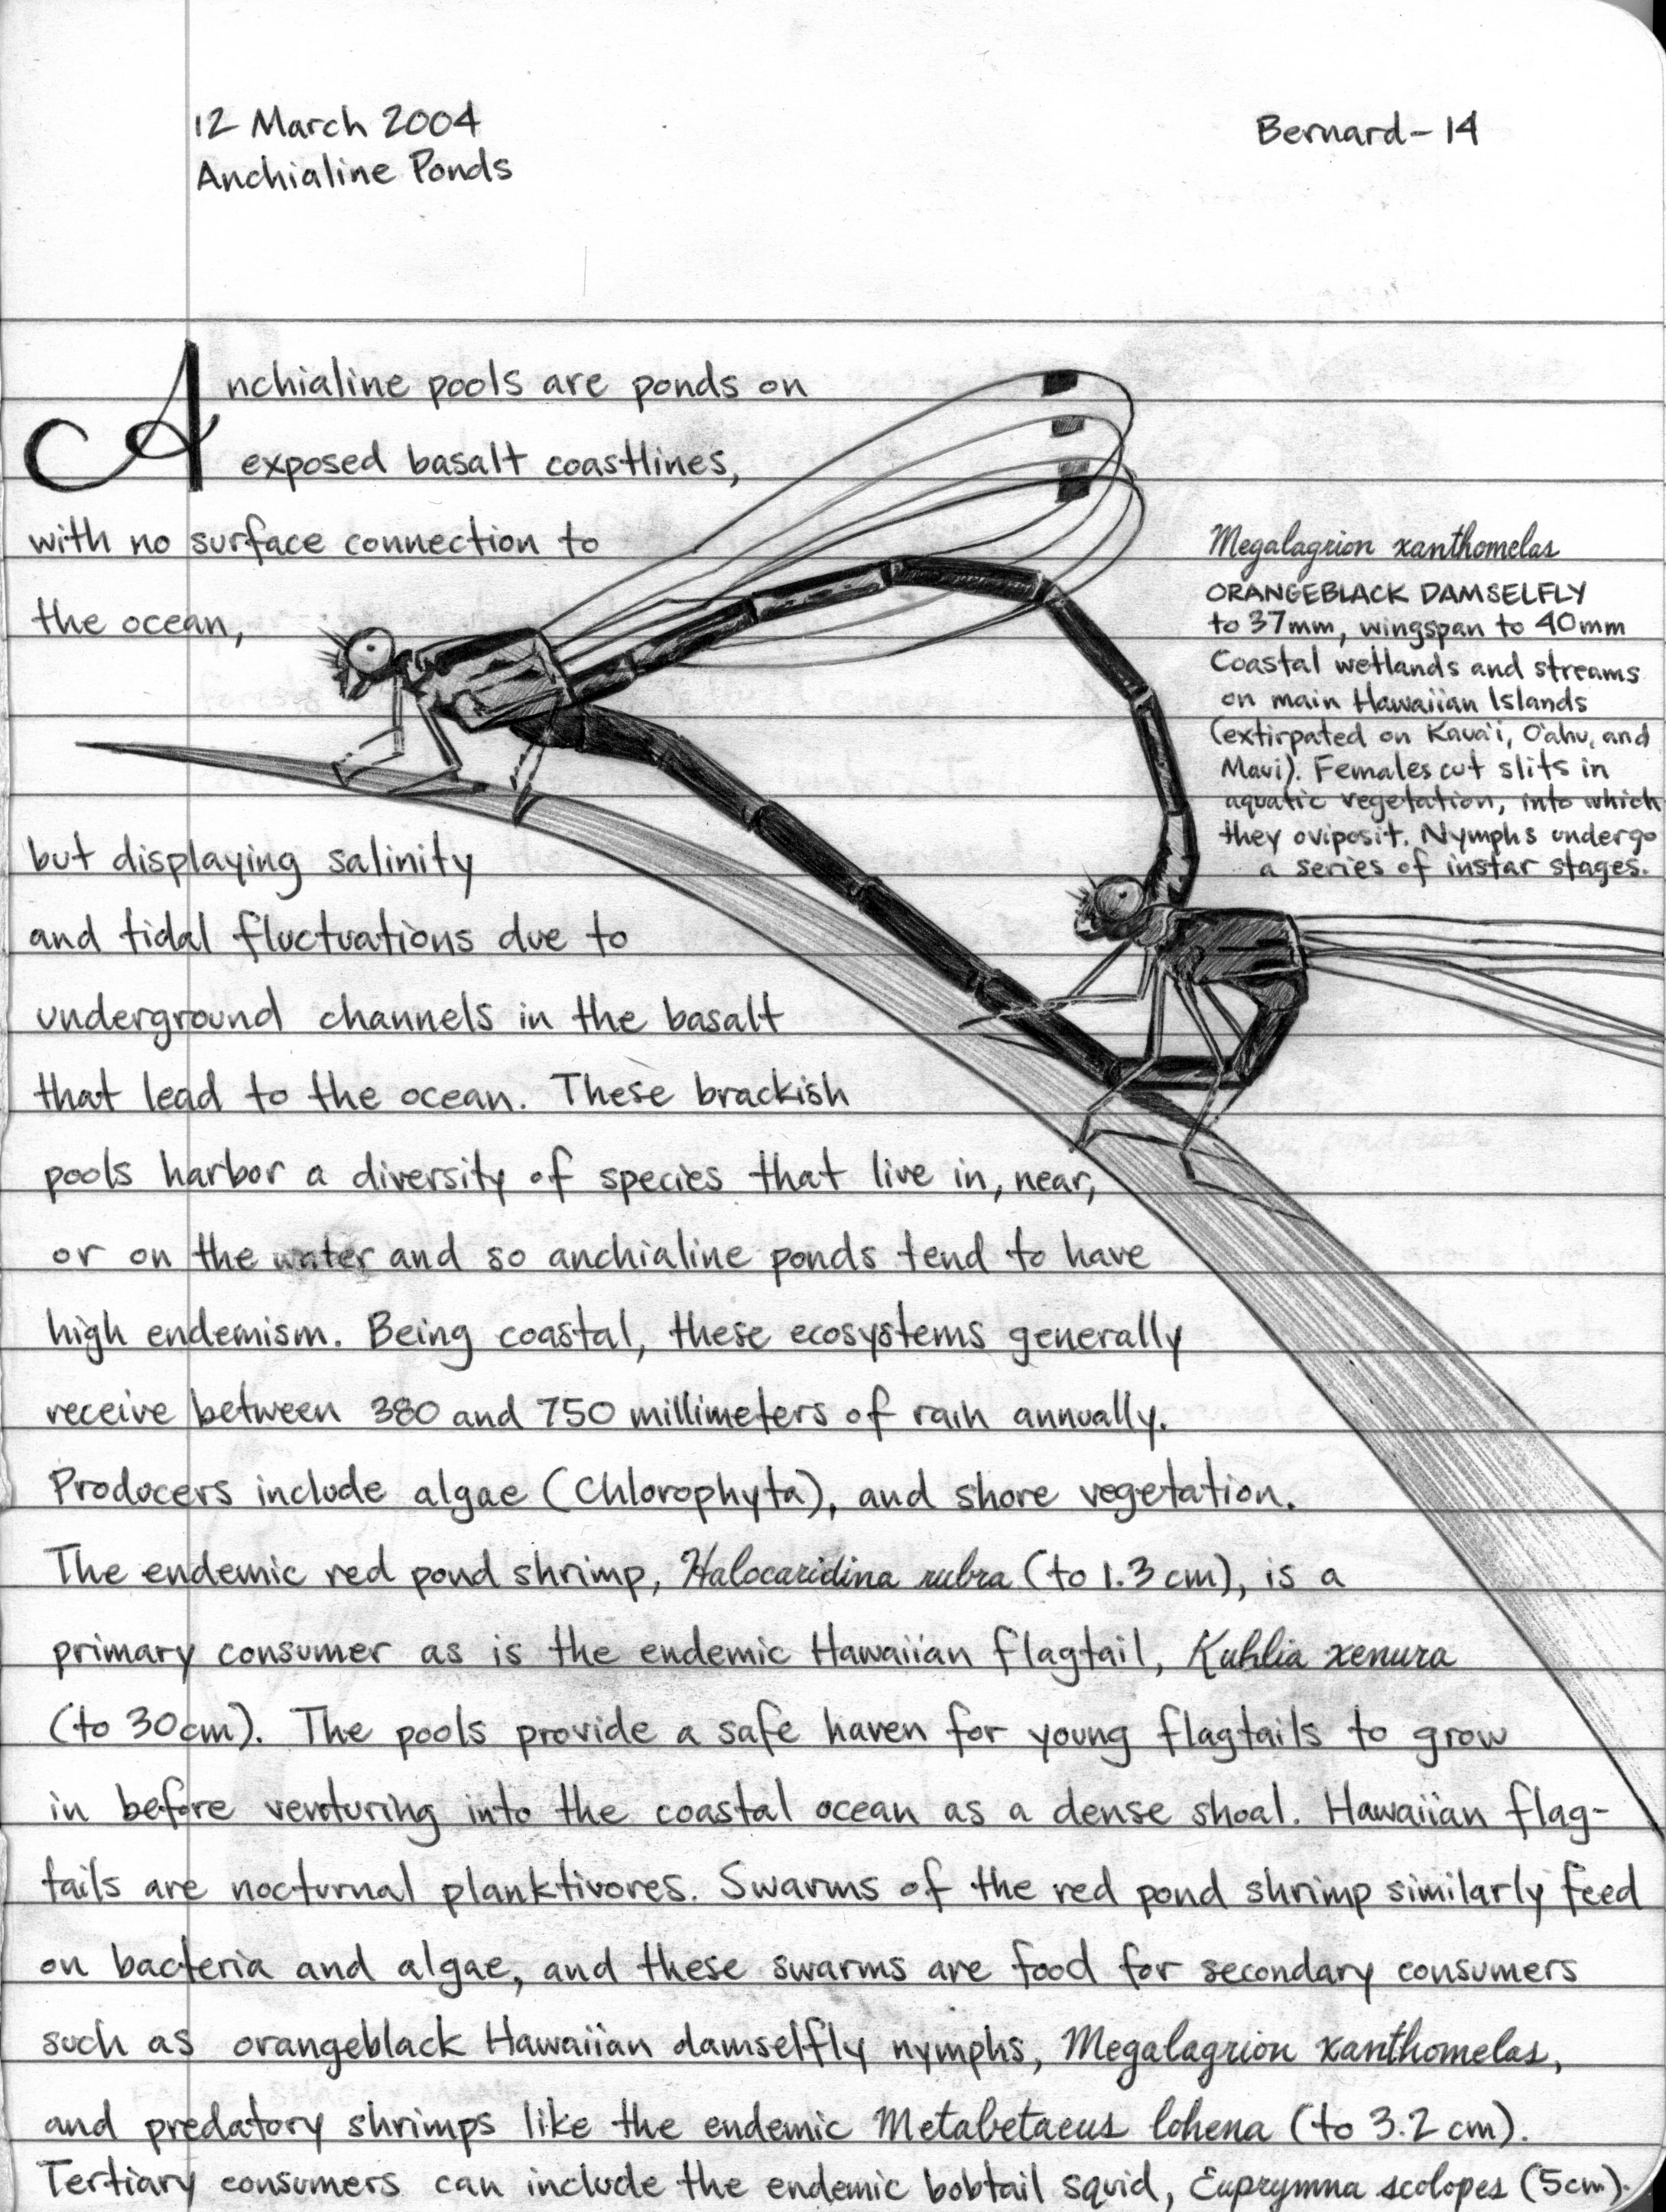 12 March 2004
Anchialine Ponds
Bernard-14
Anchialine pools are ponds on
exposed basalt coastlines,
with no surface connection to
the ocean,
Megalagrion xanthomelas
ORANGEBLACK DAMSELFLY
to 37mm, wingspan to 40mm
Coastal wetlands and streams
on main Hawaiian Islands
(extirpated on Kaua'i, O'ahu, and
Maui). Females cut slits in
aquatic vegetation, into which
they oviposit. Nymphs undergo
a series of instar stages.
but displaying salinity
and tidal fluctuations due to
underground channels in the basalt
that lead to the ocean. These brackish
pools harbor a diversity of species that live in, near,
or on the water and so anchialine ponds tend to have
high endemism. Being coastal, these ecosystems generally
receive between 380 and 750 millimeters of rain annually.
Producers include algae (Chlorophyta), and shore vegetation.
The endemic red pond shrimp, Halocaridina rubra (to 1.3 cm), is a
primary consumer as is the endemic Hawaiian flagtail, Kuhlia xenura
(to 30cm). The pools provide a safe haven for young flagtails to grow
in before venturing into the coastal ocean as a dense shoal. Hawaiian flag-
tails are nocturnal planktivores. Swarms of the red pond shrimp similarly feed
on bacteria and algae, and these swarms are food for secondary consumers
such as orangeblack Hawaiian damselfly nymphs, Megalagrion xanthomelas,
and predatory shrimps like the endemic Metabetaeus lohena (to 3.2 cm).
Tertiary consumers can include the endemic bobtail squid, Euprymna scolopes (5cm).